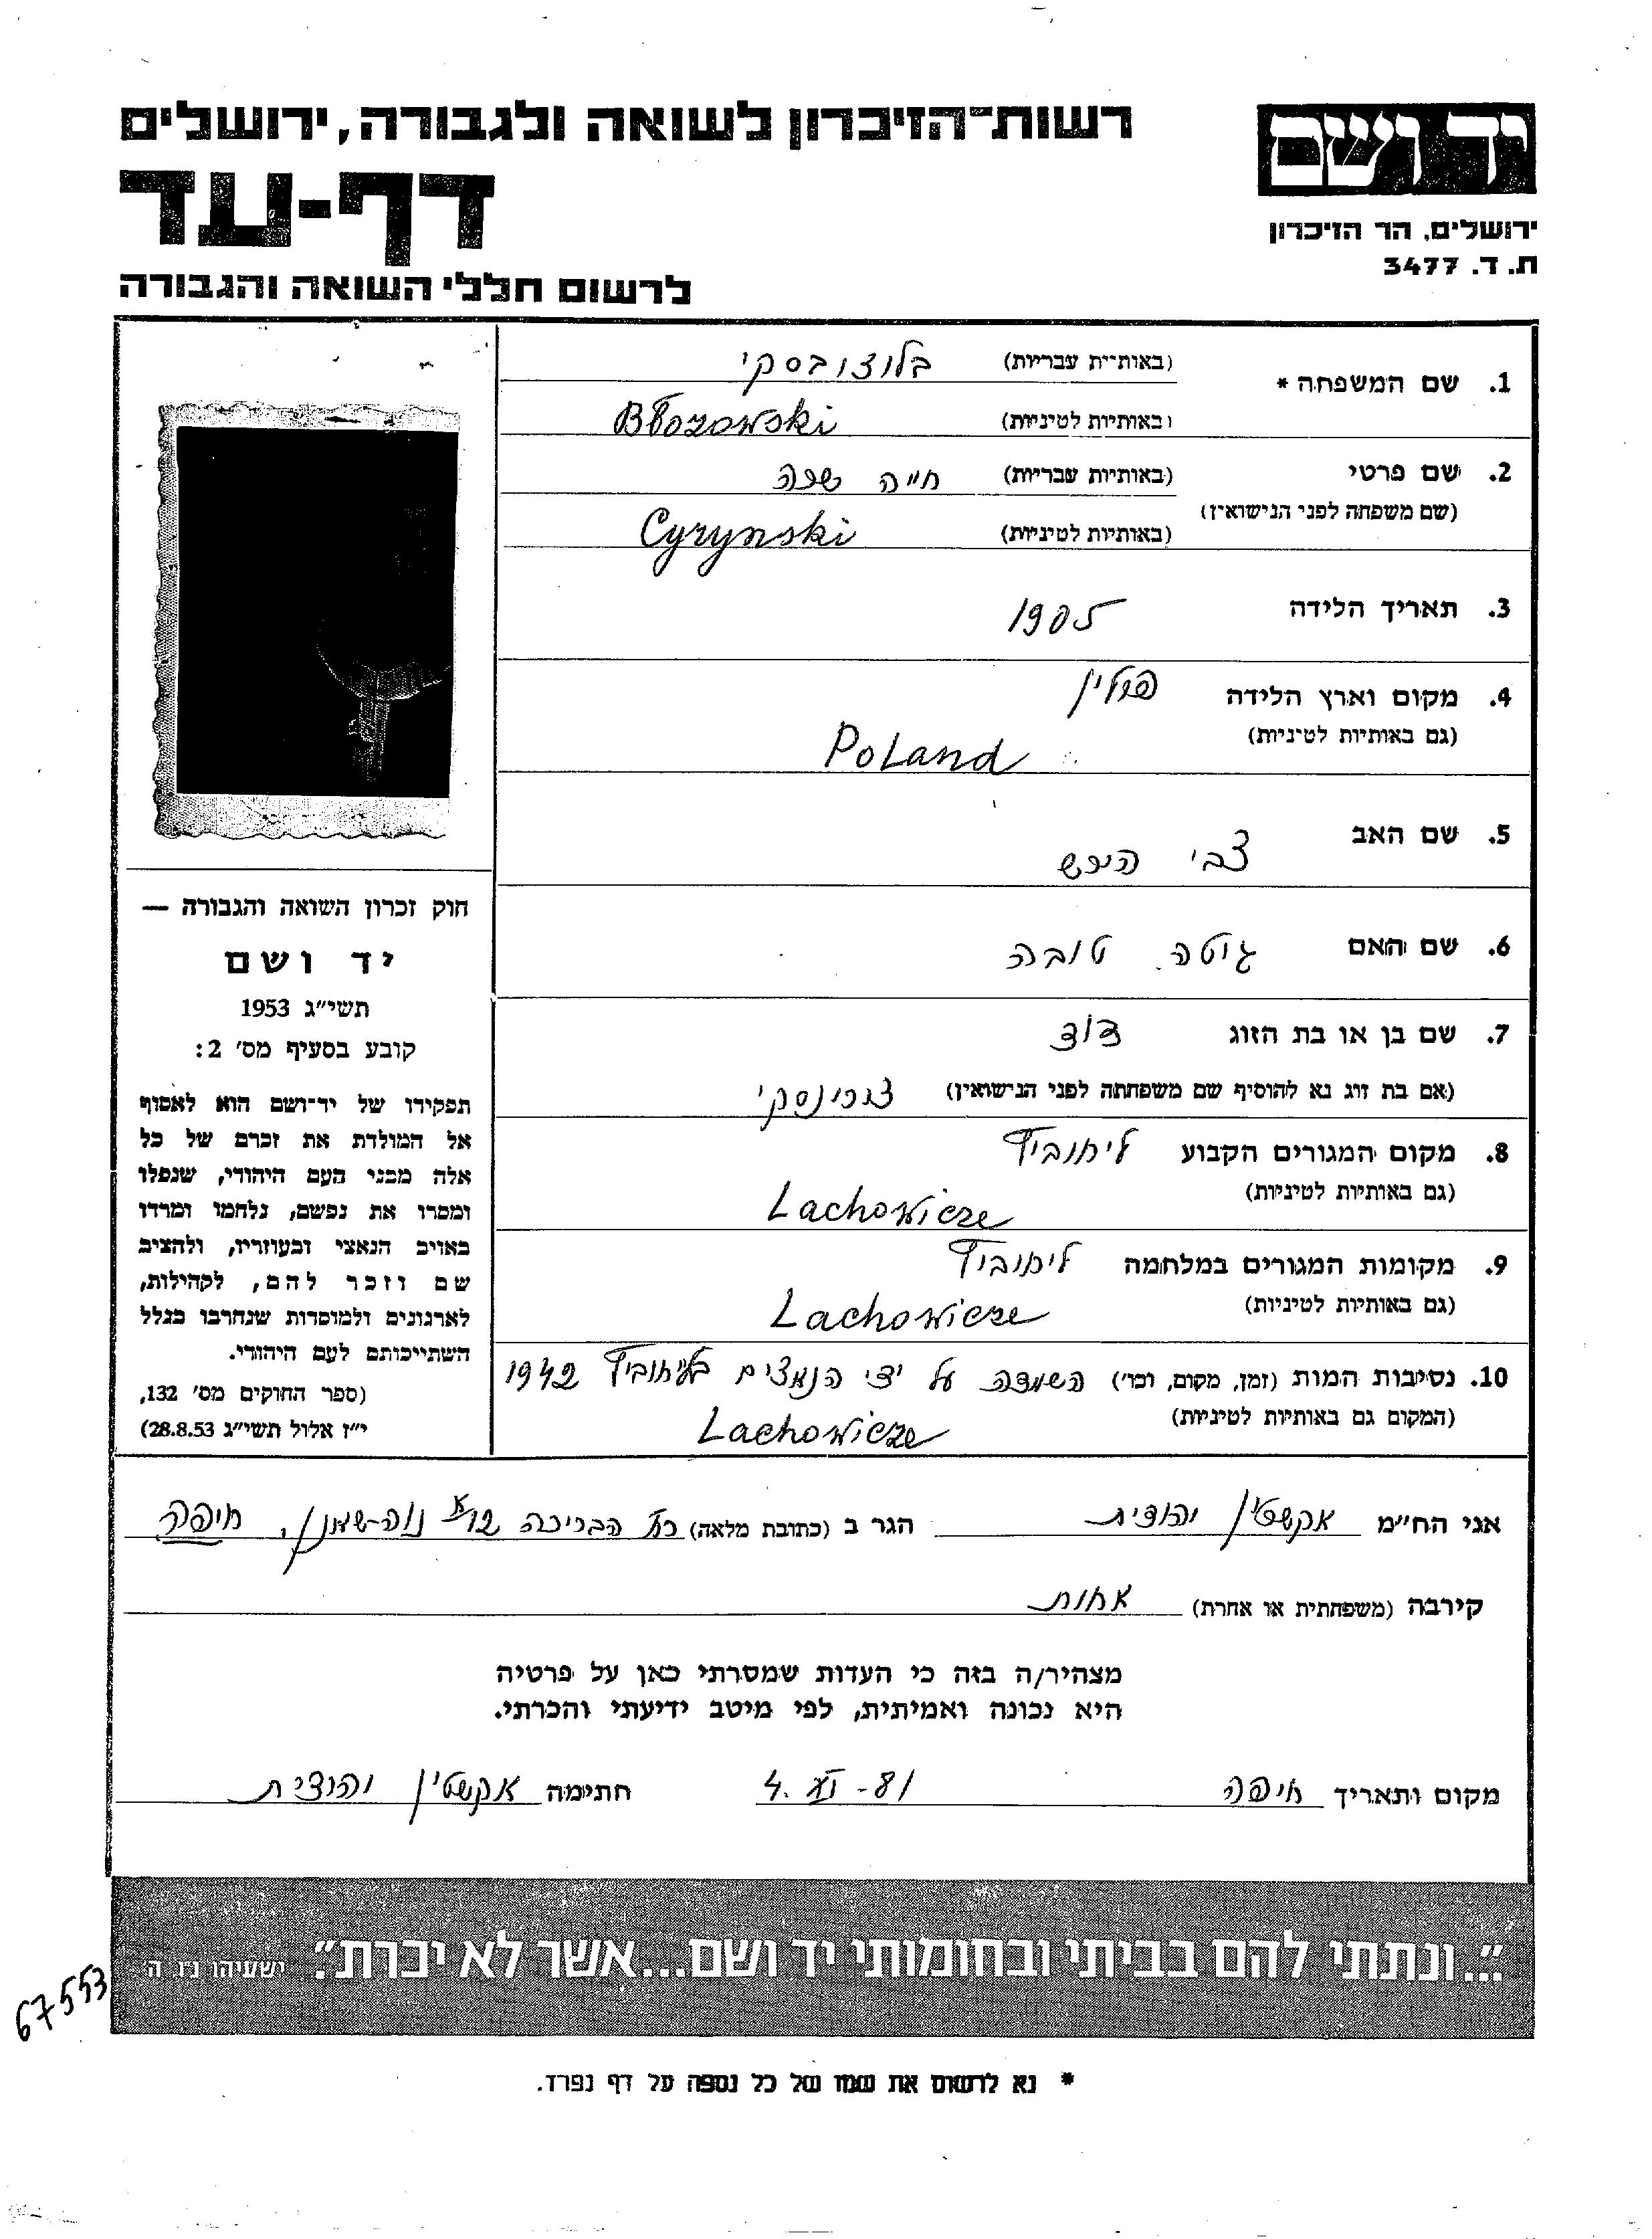 רשות־הזיכרון לשואה ולגבורה, ירושלים
דף-עד
לרשום חללי השואה והגבורה
יד ושם
ירושלים, הר הזיכרון
ת. ד. 3477
1. שם המשפחה * (באותיות עבריות) בלוצובסקי
(באותיות לטיניות) Błozowski
2. שם פרטי (באותיות עבריות) חייה שרה
(שם משפחה לפני הנישואין) (באותיות לטיניות) Cyrynski
3. תאריך הלידה 1905
4. מקום וארץ הלידה פולין
(גם באותיות לטיניות) Poland
5. שם האב צבי הירש
6. שם האם גוטה טובה
7. שם בן או בת הזוג דוד
(אם בת זוג נא להוסיף שם משפחתה לפני הנישואין) צירינסקי
8. מקום המגורים הקבוע ליחוביץ
(גם באותיות לטיניות) Lachowicze
9. מקומות המגורים במלחמה ליחוביץ
(גם באותיות לטיניות) Lachowicze
10. נסיבות המות (זמן, מקום, וכו׳) השמדה על ידי הנמצים בליחוביץ 1942
(המקום גם באותיות לטיניות) Lachowicze
חוק זכרון השואה והגבורה —
יד ושם
תשי״ג 1953
קובע בסעיף מס׳ 2:
תפקידו של יד־ושם הוא לאסוף
אל המולדת את זכרם של כל
אלה מבני העם היהודי, שנפלו
ומסרו את נפשם, נלחמו ומרדו
באויב הנאצי ובעוזריו, ולהציב
שם וזכר להם, לקהילות,
לארגונים ולמוסדות שנחרבו בגלל
השתייכותם לעם היהודי.
(ספר החוקים מס׳ 132,
י״ז אלול תשי״ג 28.8.53)
אני הח״מ אקשטין יהודית הגר ב (כתובת מלאה) רח הבריכה 12א נוה-שאנן, חיפה
קירבה (משפחתית או אחרת) אחות
מצהיר/ה בזה כי העדות שמסרתי כאן על פרטיה
היא נכונה ואמיתית, לפי מיטב ידיעתי והכרתי.
מקום ותאריך חיפה 4. XI -81 חתימה אקשטין יהודית
"...ונתתי להם בביתי ובחומותי יד ושם...אשר לא יכרת". ישעיהו נו, ה
67553
* נא לרשום את שמו של כל נספה על דף נפרד.